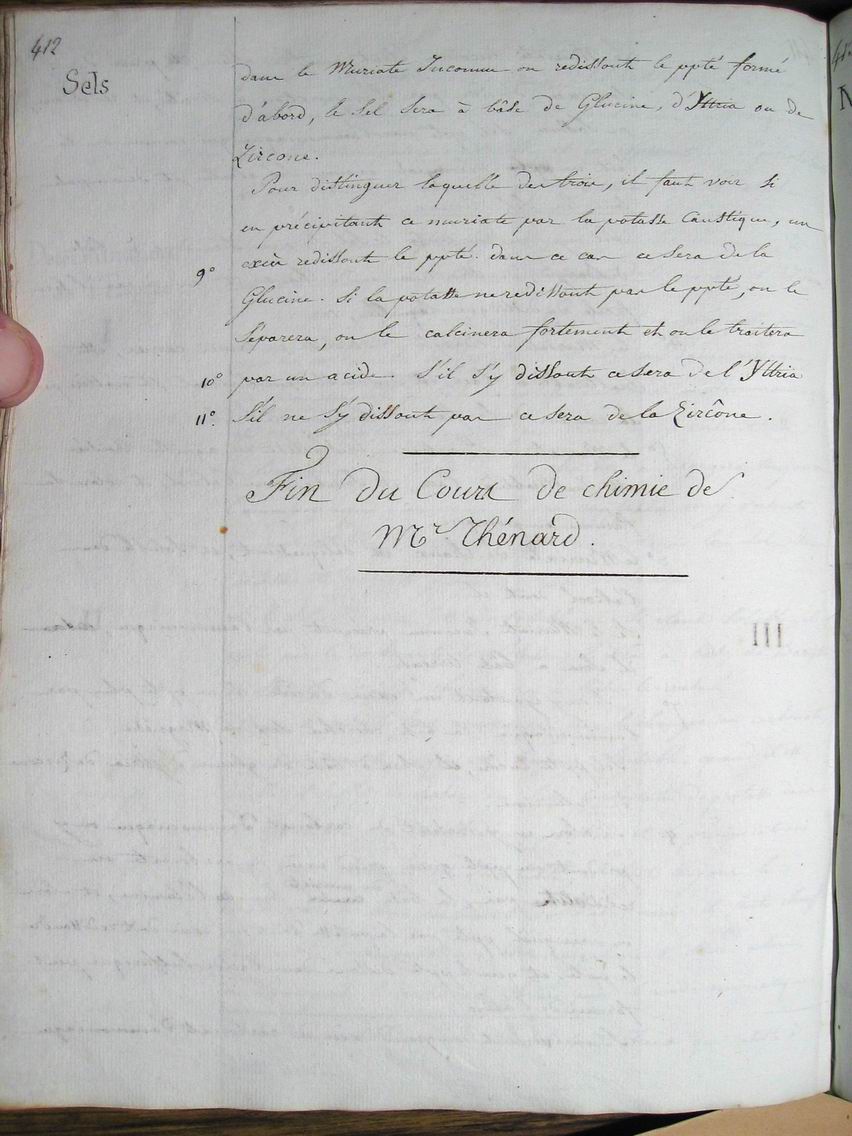 412
Sels
dans le Muriate Inconnu on redissout le ppté formé
d'abord, le Sel sera à bâse de Glucine, d'Yttria ou de
Zircone.
Pour distinguer laquelle des trois, il faut voir si
en précipitant ce muriate par la potasse Caustique, un
9° excès redissout le ppté. dans ce cas ce sera de la
Glucine. Si la potasse ne redissout pas le ppté, on le
Séparera, on le calcinera fortement et on le traitera
10° par un acide. S'il s'y dissout ce sera de l'Yttria
11°. S'il ne s'y dissout pas ce sera de la Zircône.
Fin du Cours de chimie de
Mr Thénard.